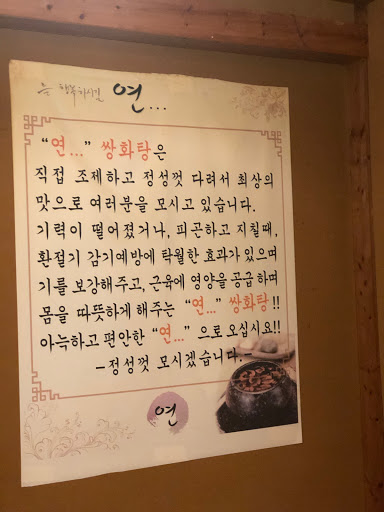 늘 행복하시길 연...
“연...” 쌍화탕은
직접 조제하고 정성껏 다려서 최상의
맛으로 여러분을 모시고 있습니다.
기력이 떨어졌거나, 피곤하고 지칠때,
환절기 감기예방에 탁월한 효과가 있으며
기를 보강해주고, 근육에 영양을 공급하며
몸을 따뜻하게 해주는 “연...” 쌍화탕!!
아늑하고 편안한 “연...” 으로 오십시요!!
-정성껏 모시겠습니다.-
연